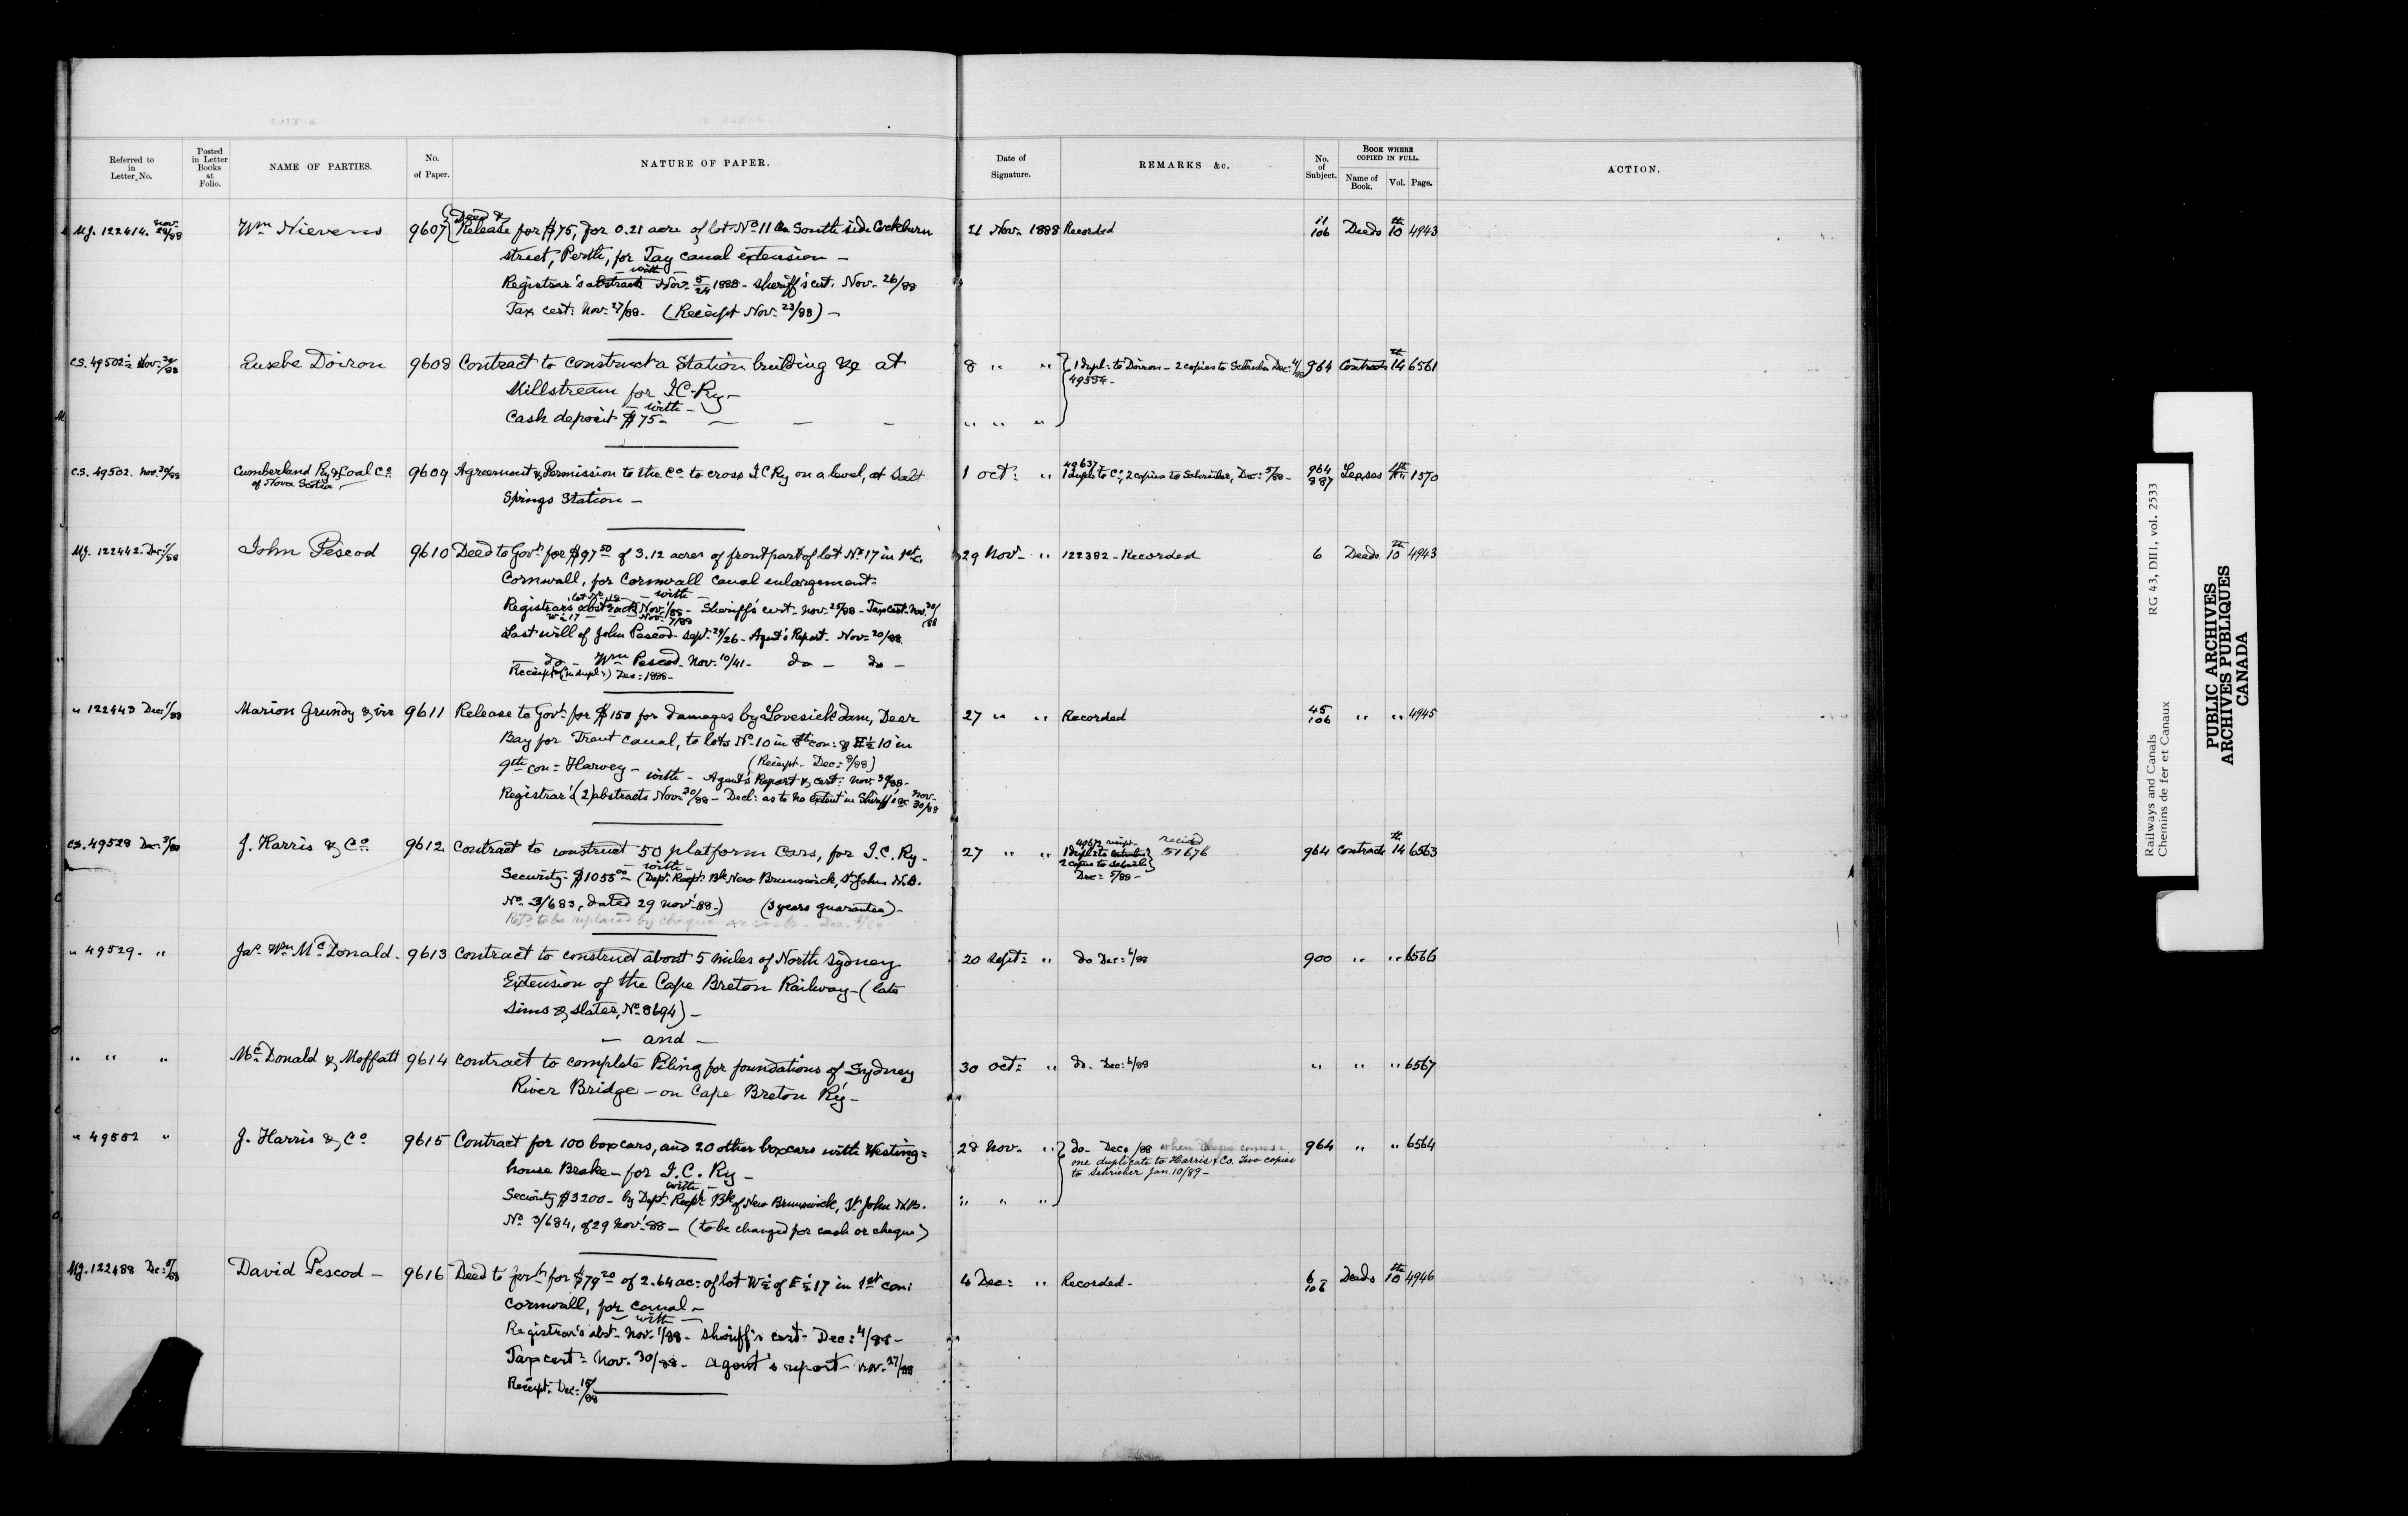 Referred to in Letter No.
Posted in Letter Books at Folio.
NAME OF PARTIES.
No. of Paper.
NATURE OF PAPER.
Date of Signature.
REMARKS &c.
No. of Subject.
BOOK WHERE COPIED IN FULL.
Name of Book.
Vol.
Page.
ACTION.
Mj. 122414. Nov. 29/88 Wm Nievens 9607 Deed & Release for $75, for 0.21 acre of lot No 11 on South side Cockburn 21 Nov. 1888 Recorded 11/106 Deeds 10th 4943
street, Perth, for Tay canal extension –
– with –
Registrar's abstracts Nov. 5/24 1888 – Sheriff's cert. Nov. 26/88
Tax cert: Nov. 27/88 – (Receipt Nov. 23/88) –
CS. 49502½ Nov. 30/88 Eusebe Doiron 9608 Contract to construct a Station building &c at 8 " " 1 dupl. to Doiron – 2 copies to Schreiber Dec. 4/88 964 Contracts 14th 6561
49554 –
Millstream for I.C. Ry –
– with –
Cash deposit $75 – " " "
CS. 49502. Nov. 30/88 Cumberland Ry & Coal Co 9609 Agreement & Permission to the Co to cross I C Ry on a level, at Salt 1 Oct: " 49637 964/887 Leases 4th 1570
of Nova Scotia – 1 dupl. to Co, 2 copies to Schreiber, Dec: 5/88 –
Springs Station –
Mj. 122442. Dec: 1/88 John Pescod 9610 Deed to Govt for $97 50 of 3.12 acres of front part of lot No 17 in 1st c. 29 Nov – " 122382 – Recorded 6 Deeds 10th 4943
Cornwall, for Cornwall Canal enlargement.
– with –
Registrars abstracts Nov. 1/88 – Sheriff's cert – Nov. 28/88 – Tax cert. Nov. 30/88
W½ 17 – Nov. 7/88
Last will of John Pescod – Sept. 29/26 – Agent's Report – Nov. 20/88
– do – Wm Pescod – Nov. 10/41 – do – do –
Receipt (in dupl.) Dec: 1888 –
" 122443 Dec: 1/88 Marion Grundy & vir 9611 Release to Govt for $150 for damages by Lovesick dam, Deer 27 " " Recorded 45/106 " " 4945
Bay for Trent Canal, to lots No 10 in 8th con: & E½ 10 in
9th con: Harvey – with – (Receipt – Dec: 8/88)
Agent's Report & cert: Nov. 30/88 –
Registrar's (2) abstracts Nov. 30/88 – Decl: as to no extent in Sheriff's oc Nov. 30/88
CS. 49528 Dec. 3/88 J. Harris & Co 9612 Contract to construct 50 platform cars, for I.C. Ry – 27 " " 49672 recipt. 964 Contracts 14th 6563
51676
– with –
Security – $1055 00 – (Dept. Recpt. Bk New Brunswick, St John N.B. 2 copies to Schreiber
Dec: 5/88 –
No 3/683, dated 29 Nov. 88 –) (3 years guarantee) –
Retd to be replaced by cheque or cash – Dec.
" 49529. " Jas. Wm McDonald. 9613 Contract to construct about 5 miles of North Sydney 20 Sept: " do Dec: 6/88 900 " " 6566
Extension of the Cape Breton Railway – (late
Sims & Slater, No 8694) –
– and –
" " " McDonald & Moffatt 9614 Contract to complete Piling for foundations of Sydney 30 Oct: " do. Dec: 6/88 " " " 6567
River Bridge – on Cape Breton Ry –
" 49552 " J. Harris & Co 9615 Contract for 100 box cars, and 20 other box cars with Westing= 28 Nov. " do – Dec. /88 when cheque comes – 964 " " 6564
one duplicate to Harris & Co. Two copies
to Schrieber Jan. 10/89 –
house Brake – for I.C. Ry –
– with –
Security $3200 – by Dept. Recpt. Bk of New Brunswick, St John N.B. " " "
No 3/684, of 29 Nov. 88 – (to be changed for cash or cheque)
Mj. 122488 Dec: 5/88 David Pescod – 9616 Deed to Govt for $79 20 of 2.64 ac: of lot W½ of E½ 17 in 1st con: 4 Dec: " Recorded – 6/106 Deeds 10th 4946
Cornwall, for canal –
– with –
Registrar's abst – Nov. 1/88 – Sheriff's cert – Dec: 4/88 –
Tax cert: Nov. 30/88 – Agent's report – Nov. 27/88
Receipt. Dec: 15/88
Railways and Canals RG 43, DIII, vol. 2533
Chemins de fer et Canaux
PUBLIC ARCHIVES
ARCHIVES PUBLIQUES
CANADA